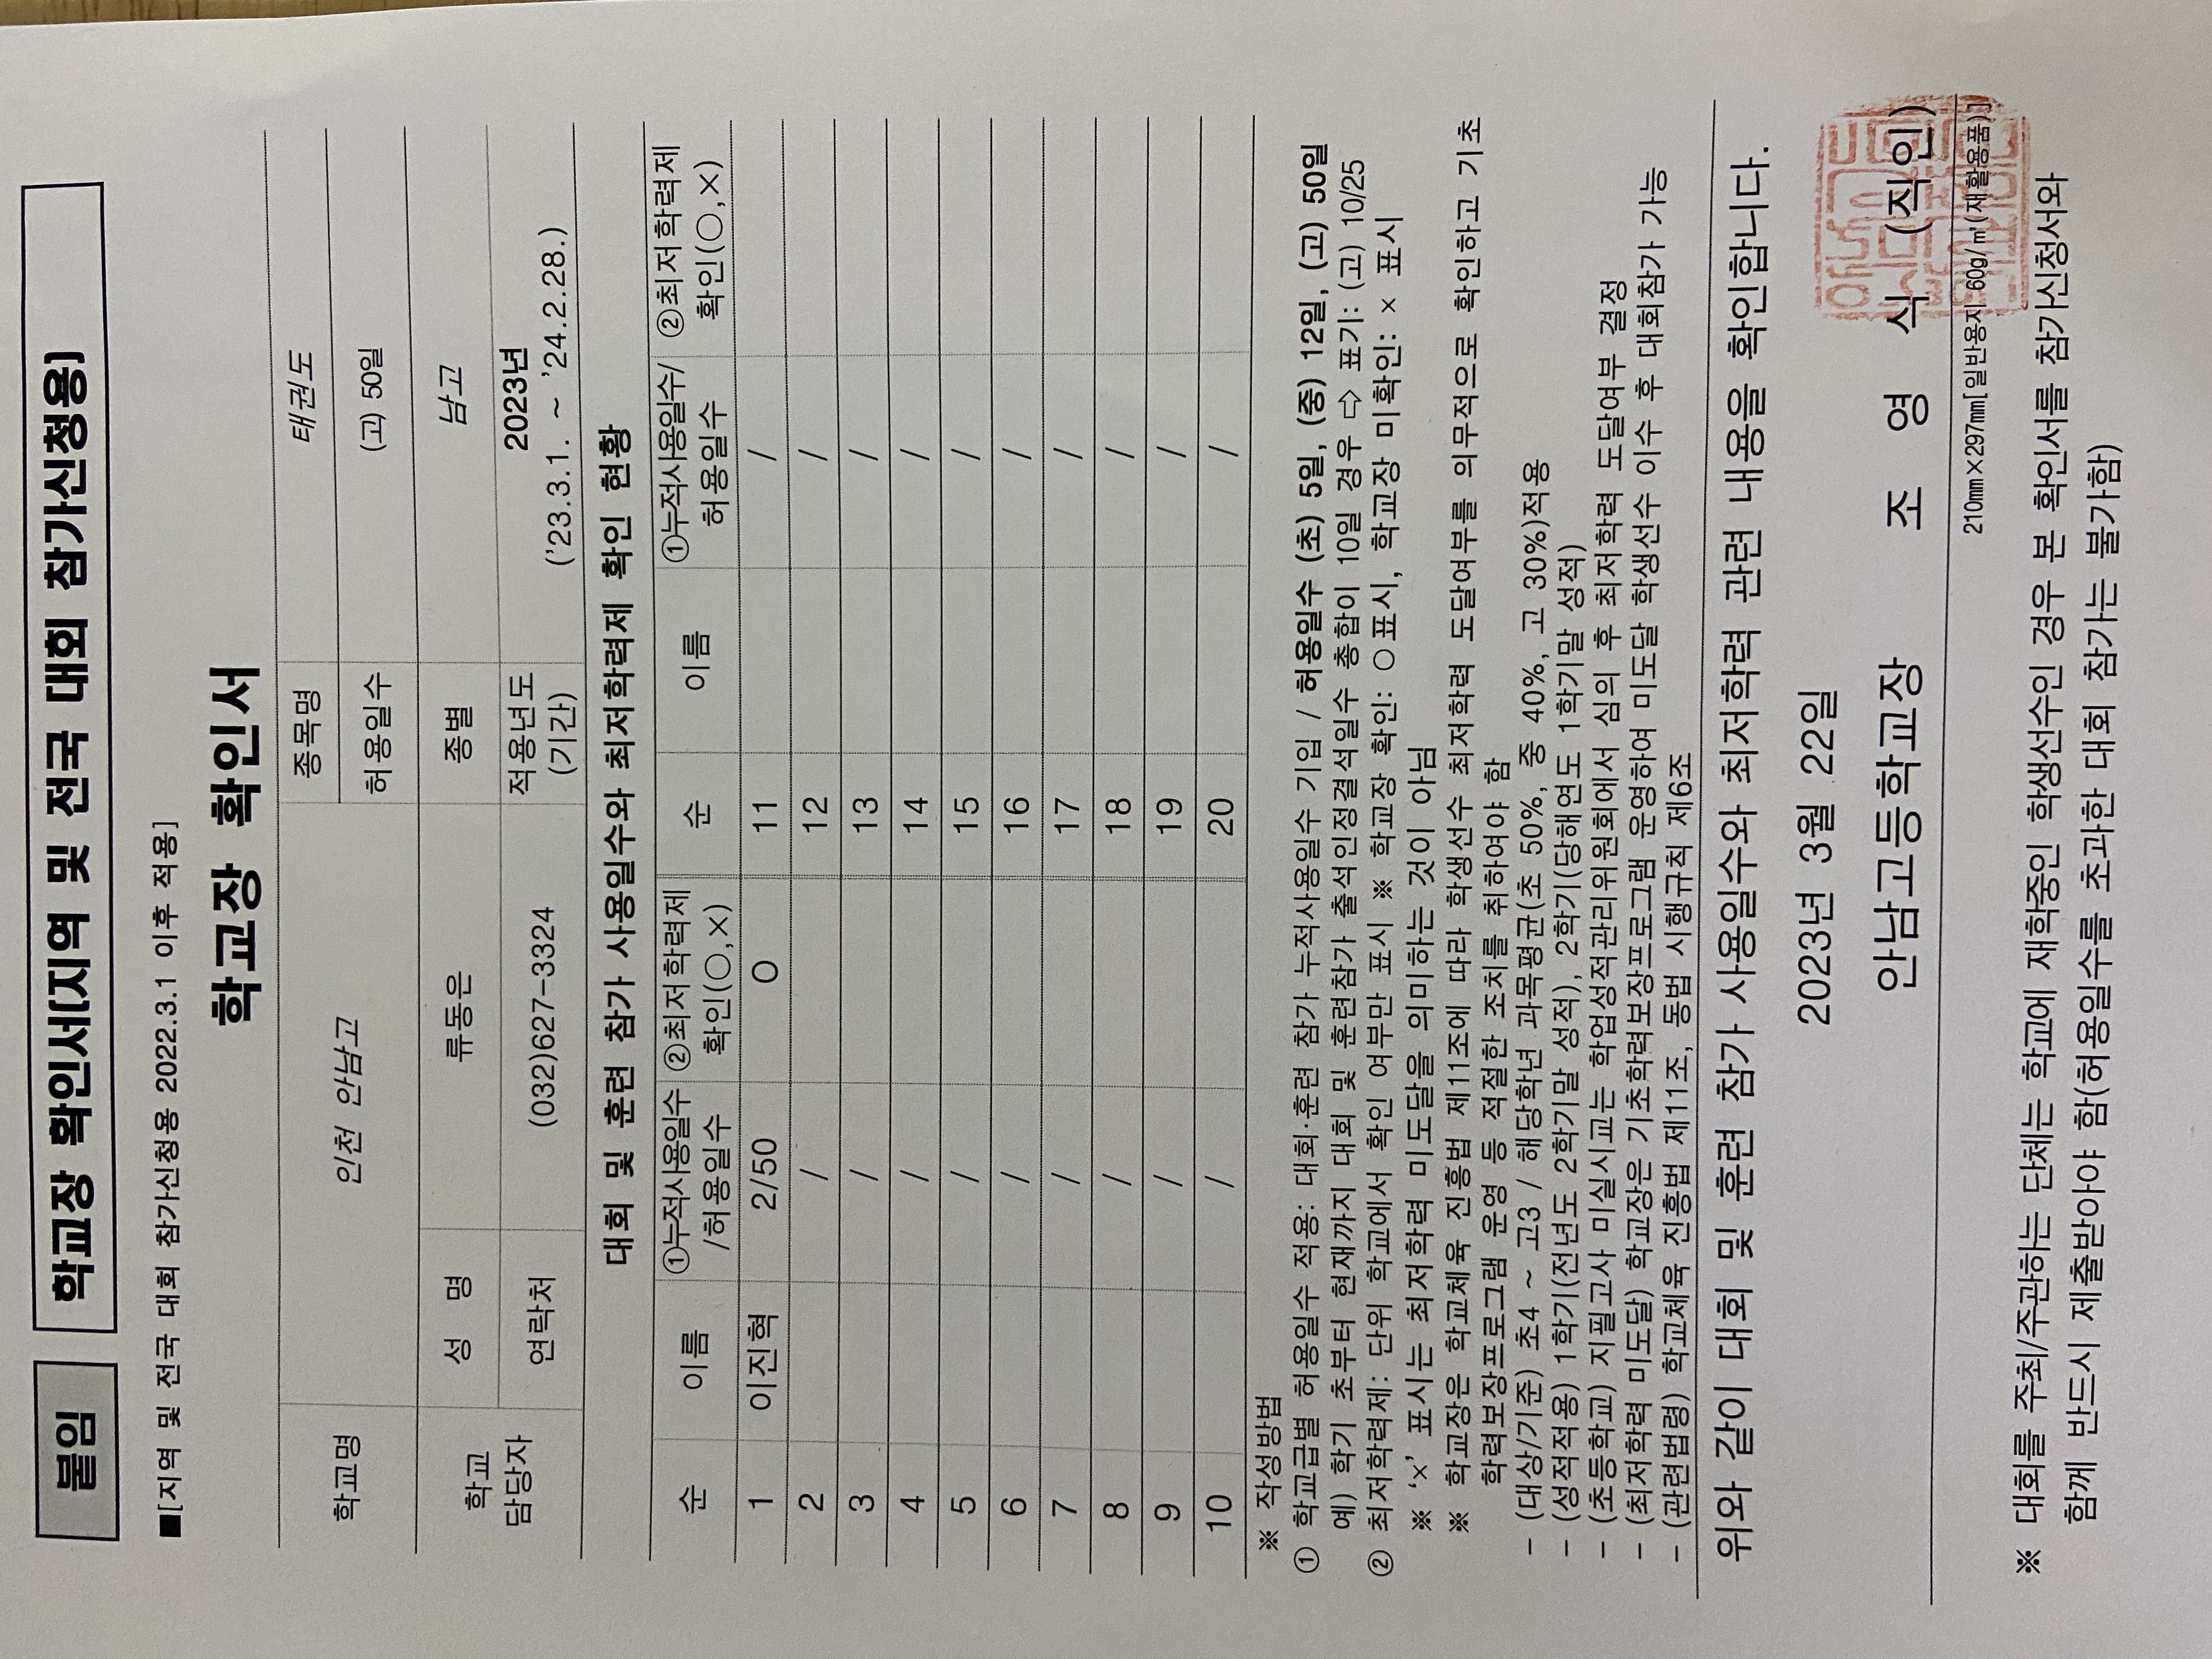 붙임 학교장 확인서(지역 및 전국 대회 참가신청용)
■[지역 및 전국 대회 참가신청용 2022.3.1 이후 적용]
학교장 확인서
학교명 인천 안남고 종목명 태권도
허용일수 (고) 50일
학교 담당자 성 명 류동은 종별 남고
연락처 (032)627-3324 적용년도 (기간) 2023년 ('23.3.1. ~ '24.2.28.)
대회 및 훈련 참가 사용일수와 최저학력제 확인 현황
순 이름 ①누적사용일수/허용일수 ②최저학력제 확인(○,×) 순 이름 ①누적사용일수/허용일수 ②최저학력제 확인(○,×)
1 이진혁 2/50 O 11 /
2 / 12 /
3 / 13 /
4 / 14 /
5 / 15 /
6 / 16 /
7 / 17 /
8 / 18 /
9 / 19 /
10 / 20 /
※ 작성방법
① 학교급별 허용일수 적용: 대회·훈련 참가 누적사용일수 기입 / 허용일수 (초) 5일, (중) 12일, (고) 50일
예) 학기 초부터 현재까지 대회 및 훈련참가 출석인정결석일수 총합이 10일 경우 ⇨ 표기: (고) 10/25
② 최저학력제: 단위 학교에서 확인 여부만 표시 ※ 학교장 확인: ○ 표시, 학교장 미확인: × 표시
※ '×' 표시는 최저학력 미도달을 의미하는 것이 아님
※ 학교장은 학교체육 진흥법 제11조에 따라 학생선수 최저학력 도달여부를 의무적으로 확인하고 기초
학력보장프로그램 운영 등 적절한 조치를 취하여야 함
- (대상/기준) 초4 ~ 고3 / 해당학년 과목평균(초 50%, 중 40%, 고 30%)적용
- (성적적용) 1학기(전년도 2학기말 성적), 2학기(당해연도 1학기말 성적)
- (초등학교) 지필고사 미실시교는 학업성적관리위원회에서 심의 후 최저학력 도달여부 결정
- (최저학력 미도달) 학교장은 기초학력보장프로그램 운영하여 미도달 학생선수 이수 후 대회참가 가능
- (관련법령) 학교체육 진흥법 제11조, 동법 시행규칙 제6조
위와 같이 대회 및 훈련 참가 사용일수와 최저학력 관련 내용을 확인합니다.
2023년 3월 22일
안남고등학교장 조 영 식 (직인)
210mm×297mm[일반용지 60g/㎡(재활용품)]
※ 대회를 주최/주관하는 단체는 학교에 재학중인 학생선수인 경우 본 확인서를 참가신청서와
함께 반드시 제출받아야 함(허용일수를 초과한 대회 참가는 불가함)